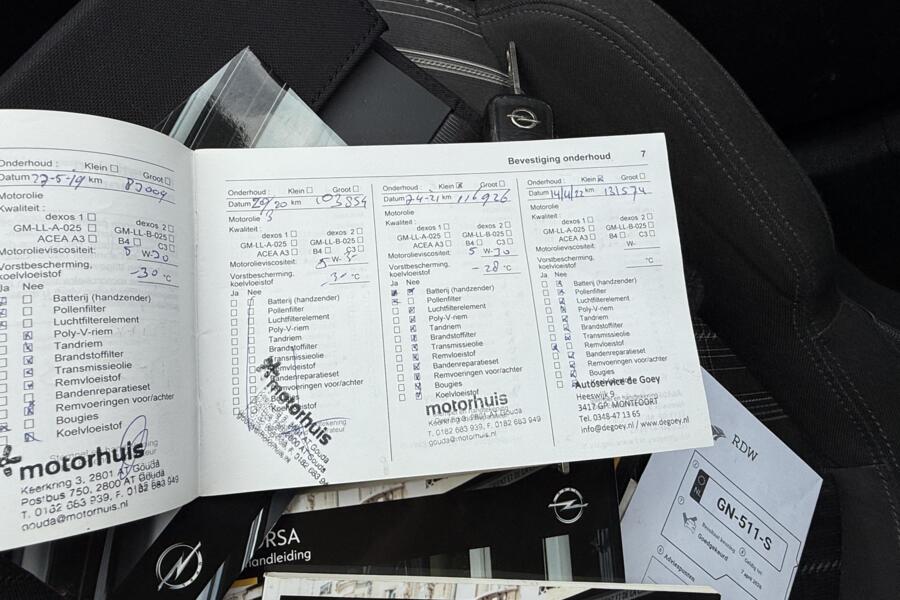 Onderhoud : Klein Groot
Datum 27-5-19 km
Motorolie
Kwaliteit :
dexos 1 dexos 2
GM-LL-A-025 GM-LL-B-025
ACEA A3 B4 C3
Motorolieviscositeit: 5 W-30
Vorstbescherming,
koelvloeistof -30 °C
Ja Nee
Batterij (handzender)
Pollenfilter
Luchtfilterelement
Poly-V-riem
Tandriem
Brandstoffilter
Transmissieolie
Remvloeistof
Bandenreparatieset
Remvoeringen voor/achter
Bougies
Koelvloeistof
motorhuis
Keerkring 3, 2801 Gouda
Postbus 750, 2800 AT Gouda
T. 0182 683 939, F. 0182 683 949
gouda@motorhuis.nl
Bevestiging onderhoud 7
Onderhoud : Klein Groot
Datum km 103854
Motorolie
Kwaliteit :
dexos 1 dexos 2
GM-LL-A-025 GM-LL-B-025
ACEA A3 B4 C3
Motorolieviscositeit: 5 W-
Vorstbescherming,
koelvloeistof °C
Ja Nee
Batterij (handzender)
Pollenfilter
Luchtfilterelement
Poly-V-riem
Tandriem
Brandstoffilter
Transmissieolie
Remvloeistof
Bandenreparatieset
Remvoeringen voor/achter
Bougies
Koelvloeistof
motorhuis
Onderhoud : Klein Groot
Datum 7-4-21 km 116926
Motorolie
Kwaliteit :
dexos 1 dexos 2
GM-LL-A-025 GM-LL-B-025
ACEA A3 B4 C3
Motorolieviscositeit: 5 W-30
Vorstbescherming,
koelvloeistof -28 °C
Ja Nee
Batterij (handzender)
Pollenfilter
Luchtfilterelement
Poly-V-riem
Tandriem
Brandstoffilter
Transmissieolie
Remvloeistof
Bandenreparatieset
Remvoeringen voor/achter
Bougies
Koelvloeistof
motorhuis
T. 0182 683 939, F. 0182 683 949
gouda@motorhuis.nl
Onderhoud : Klein Groot
Datum 14/4/22 km 131574
Motorolie
Kwaliteit :
dexos 1 dexos 2
GM-LL-A-025 GM-LL-B-025
ACEA A3 B4 C3
Motorolieviscositeit: W-
Vorstbescherming,
koelvloeistof °C
Ja Nee
Batterij (handzender)
Pollenfilter
Luchtfilterelement
Poly-V-riem
Tandriem
Brandstoffilter
Transmissieolie
Remvloeistof
Bandenreparatieset
Remvoeringen voor/achter
Bougies
Koelvloeistof
Autoservice de Goey
Heeswijk 9
3417 GP MONTFOORT
Tel. 0348-47 13 65
info@degoey.nl / www.degoey.nl
RSA
handleiding
RDW
NL
GN-511-S
Goedgekeurd
Geldig tot
7 april 2026
Adviespunten